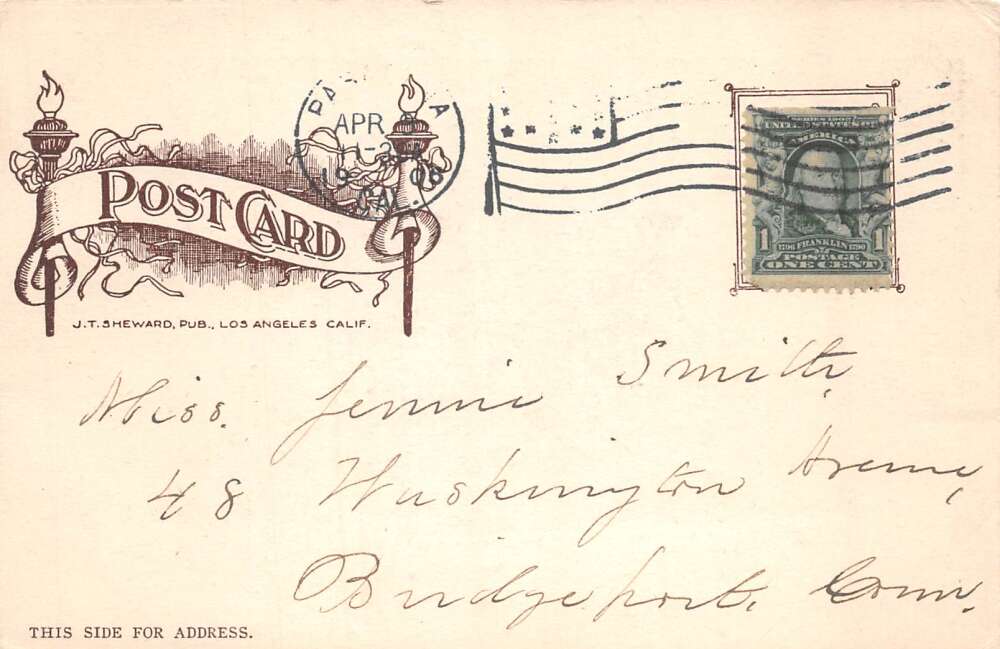 POST CARD
J.T. SHEWARD, PUB., LOS ANGELES CALIF.
APR
1908
CAL.
SERIES 1902
UNITED STATES OF AMERICA
1 1706 FRANKLIN 1790 1
POSTAGE
ONE CENT
Miss. Jennie Smith,
48 Washington Avenue,
Bridgeport, Conn.
THIS SIDE FOR ADDRESS.